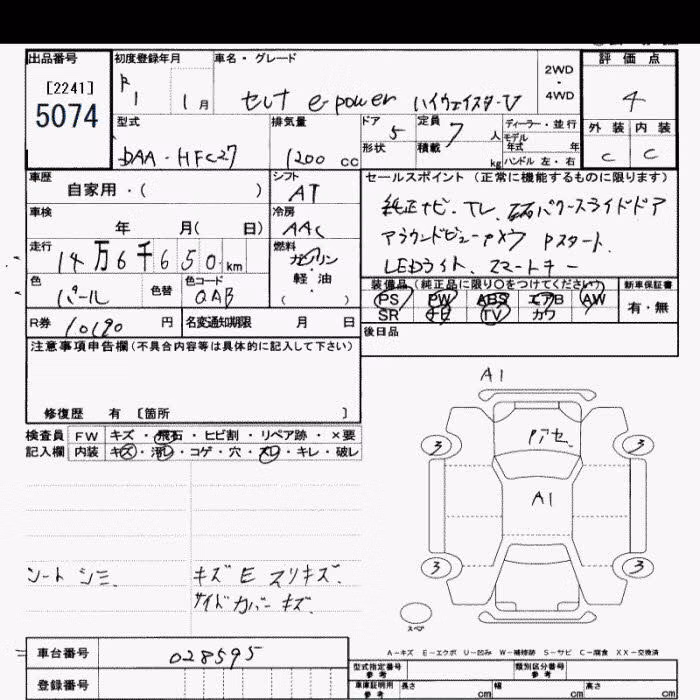 出品番号 初度登録年月 車名・グレード 2WD・4WD 評価点
[2241]
5074
R1 1月 セレナ e-power ハイウェイスターV 4
型式 排気量 ドア 定員 ディーラー・並行 外装 内装
DAA-HFC27 1200cc 5 7人 モデル年式 年
形状 積載 kg ハンドル 左・右 C C
車歴 シフト セールスポイント(正常に機能するものに限ります)
自家用・( ) AT
純正ナビ.TV.両パワースライドドア
車検 冷房
年 月( 日) AAC
アラウンドビューカメラ Pスタート.
走行 燃料
14万6千650km ガソリン・軽油( )
LEDライト、スマートキー
色 色替 色コード 装備品(純正品に限り○をつけてください) 新車保証書
パール QAB PS PW ABS エアB AW 有・無
R券 円 名変通知期限 月 日 SR ナビ TV カワ
10190
後日品
注意事項申告欄(不具合内容等は具体的に記入して下さい)
修復歴 有 [箇所 ]
検査員 FW キズ・飛石・ヒビ割・リペア跡・×要
記入欄 内装 キズ・汚レ・コゲ・穴・スレ・キレ・破レ
A1
Fアセ
3 3
A1
3 3
スペア
シート シミ. キズE スリキズ.
サイドカバー キズ.
A-キズ E-エクボ U-凹み W-補修跡 S-サビ C-腐食 XX-交換済
車台番号 028595 型式指定番号 参考 類別区分番号 参考
登録番号 車庫証明用 参考 長さ cm 幅 cm 高さ cm